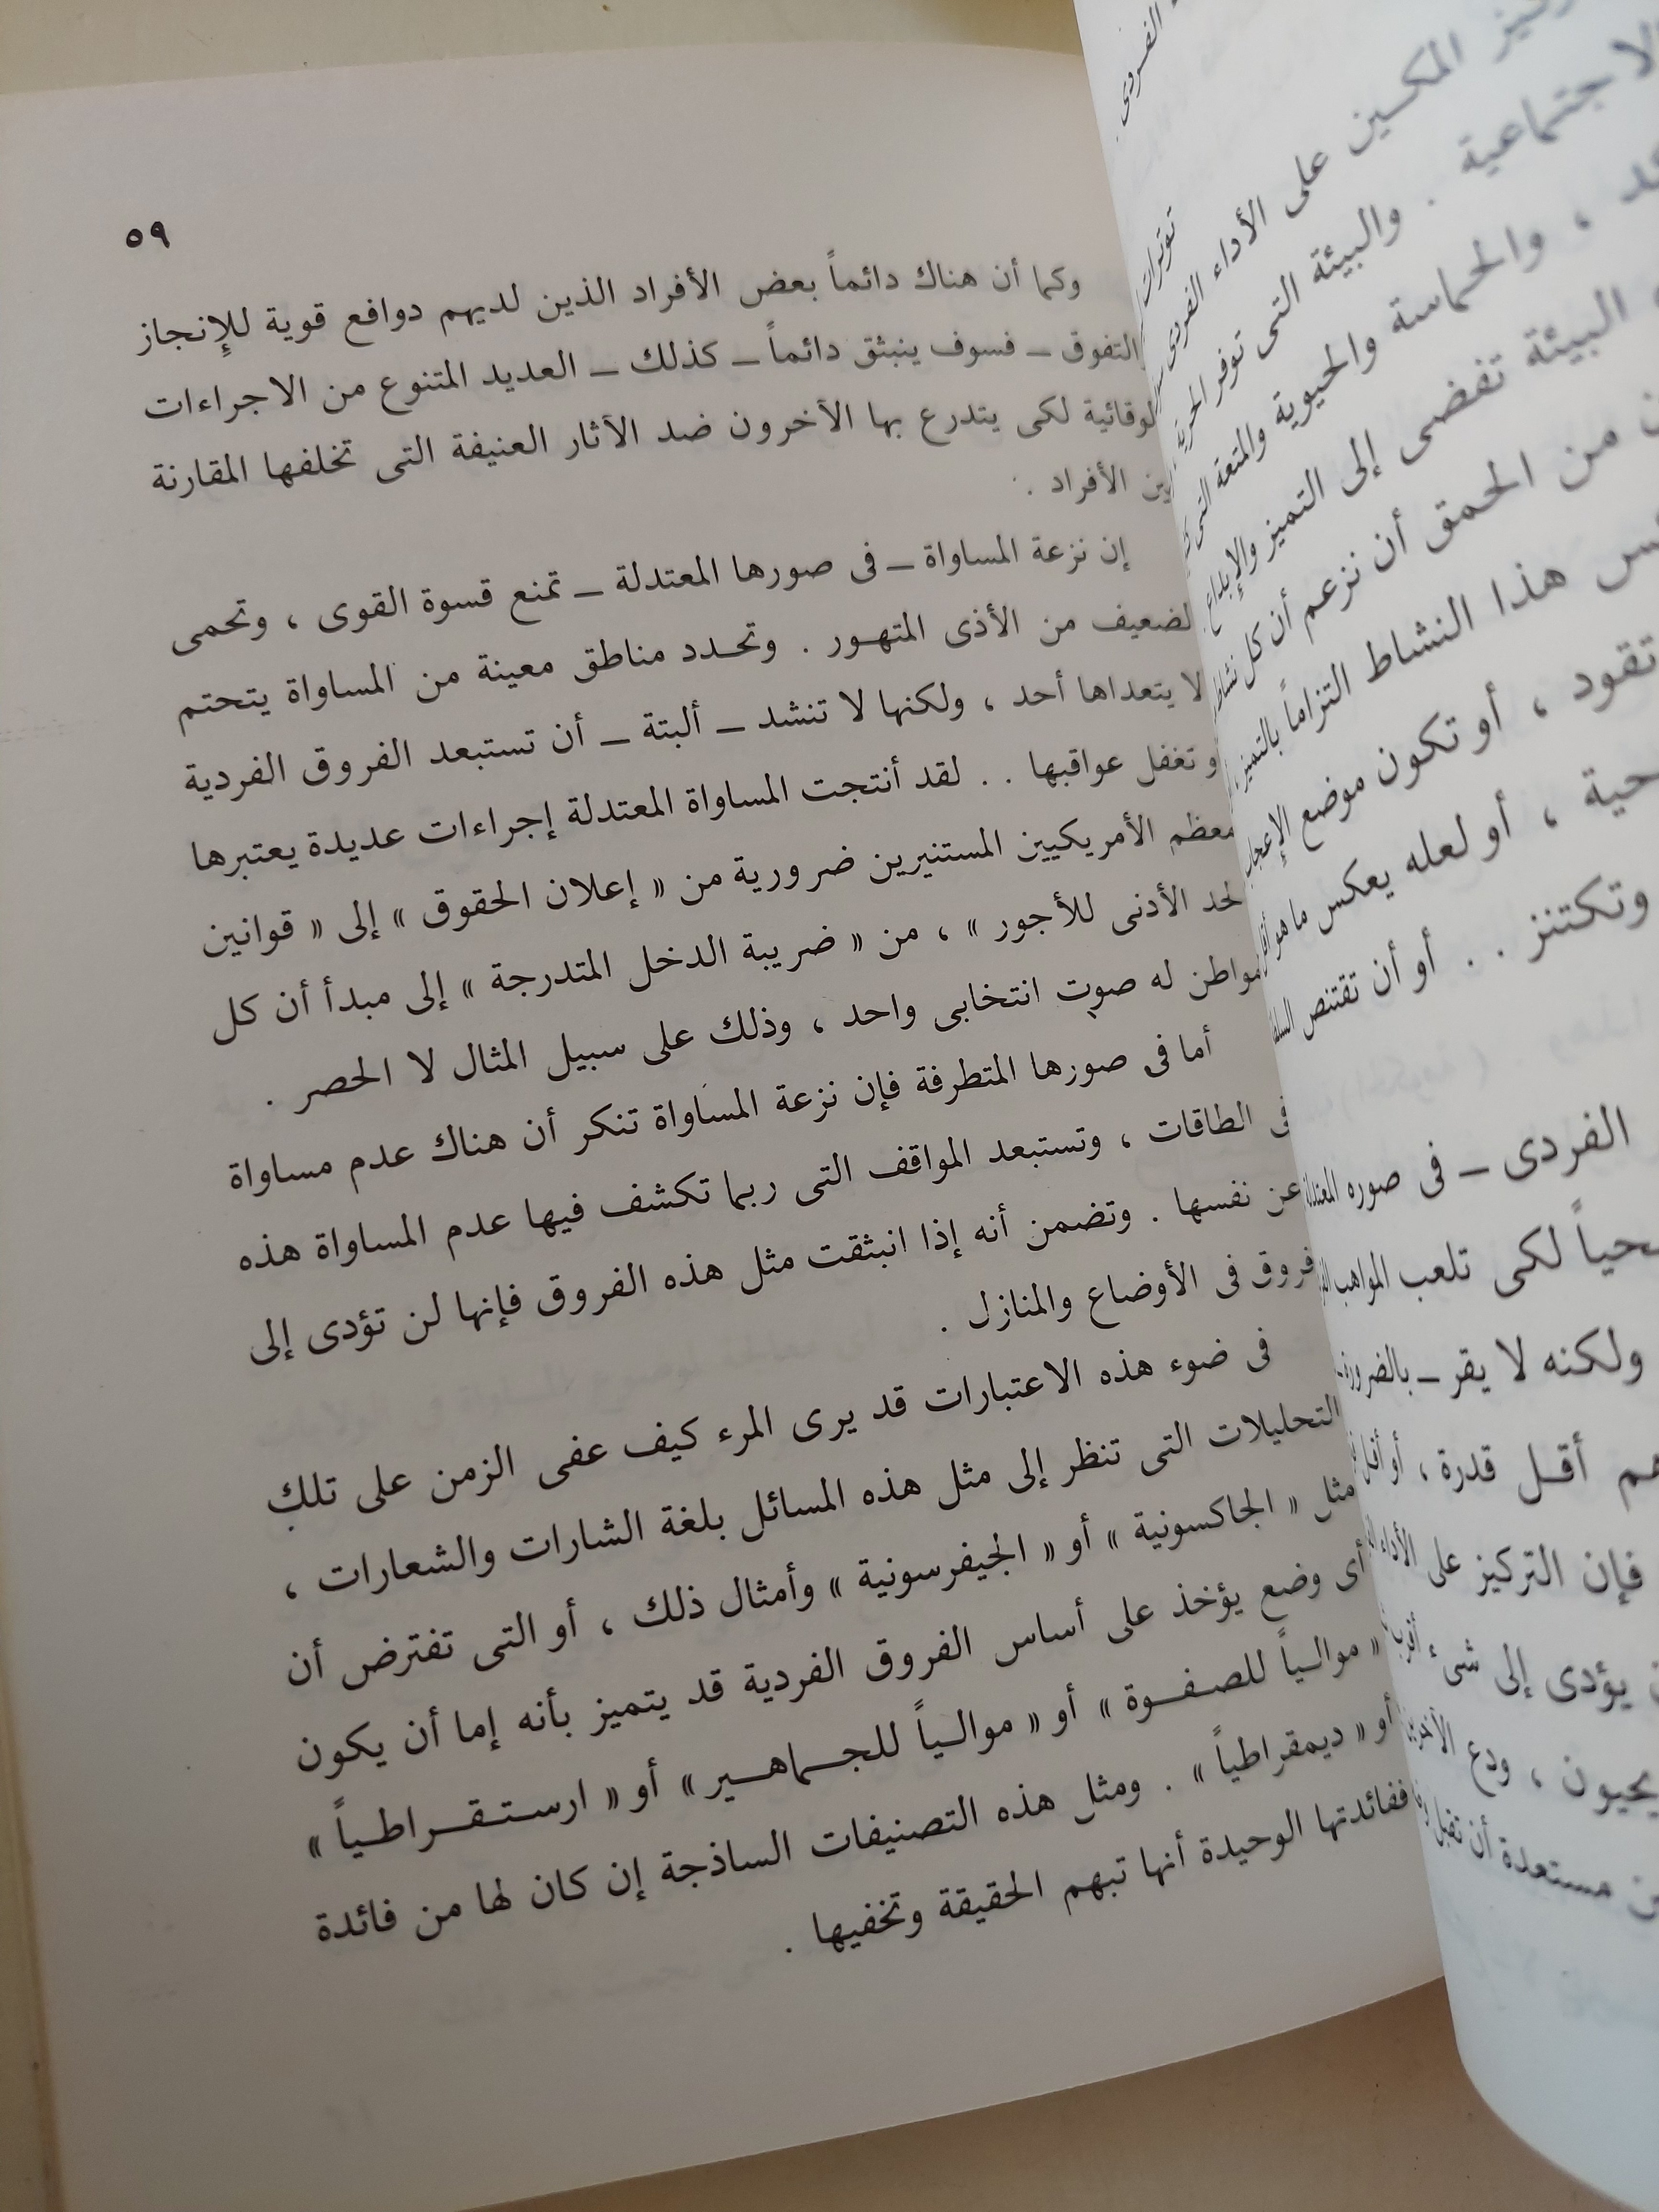 ٥٩
وكما أن هناك دائماً بعض الأفراد الذين لديهم دوافع قوية للإنجاز
التفوق ــ فسوف ينبثق دائماً ــ كذلك ــ العديد المتنوع من الاجراءات
الوقائية لكى يتدرع بها الآخرون ضد الآثار العنيفة التى تخلفها المقارنة
بين الأفراد .
إن نزعة المساواة ــ فى صورها المعتدلة ــ تمنع قسوة القوى ، وتحمى
الضعيف من الأذى المتهور . وتحدد مناطق معينة من المساواة يتحتم
لا يتعداها أحد ، ولكنها لا تنشد ــ ألبتة ــ أن تستبعد الفروق الفردية
أو تغفل عواقبها . . لقد أنتجت المساواة المعتدلة إجراءات عديدة يعتبرها
معظم الأمريكيين المستنيرين ضرورية من « إعلان الحقوق » إلى « قوانين
الحد الأدنى للأجور » ، من « ضريبة الدخل المتدرجة » إلى مبدأ أن كل
مواطن له صوت انتخابى واحد ، وذلك على سبيل المثال لا الحصر .
أما فى صورها المتطرفة فإن نزعة المساواة تنكر أن هناك عدم مساواة
فى الطاقات ، وتستبعد المواقف التى ربما تكشف فيها عدم المساواة هذه
عن نفسها . وتضمن أنه إذا انبثقت مثل هذه الفروق فإنها لن تؤدى إلى
فروق فى الأوضاع والمنازل .
فى ضوء هذه الاعتبارات قد يرى المرء كيف عفى الزمن على تلك
التحليلات التى تنظر إلى مثل هذه المسائل بلغة الشارات والشعارات ،
مثل « الجاكسونية » أو « الجيفرسونية » وأمثال ذلك ، أو التى تفترض أن
أى وضع يؤخذ على أساس الفروق الفردية قد يتميز بأنه إما أن يكون
« موالياً للصفوة » أو « موالياً للجماهير » أو « ارستقراطياً »
أو « ديمقراطياً » . ومثل هذه التصنيفات الساذجة إن كان لها من فائدة
ففائدتها الوحيدة أنها تبهم الحقيقة وتخفيها .
الفردى .
المكين على الأداء الفردى
توترات
الاجتماعية . والبيئة التى توفر الحرية
، والحماسة والحيوية والمتعة التى
البيئة تفضى إلى التميز والإبداع
من الحمق أن نزعم أن كل نشاط
هذا النشاط التزاماً بالتميز
تقود ، أو تكون موضع الإعجاب
، أو لعله يعكس ما هو
وتكتنز . . أو أن تقتنص
الفردى ــ فى صوره المعتدلة
لكى تلعب المواهب
ولكنه لا يقر ــ بالضرورة
أقل قدرة ، أو أقل
فإن التركيز على الأداء
يؤدى إلى شىء أقرب
يحيون ، ودع الآخرين
مستعدة أن تقبل